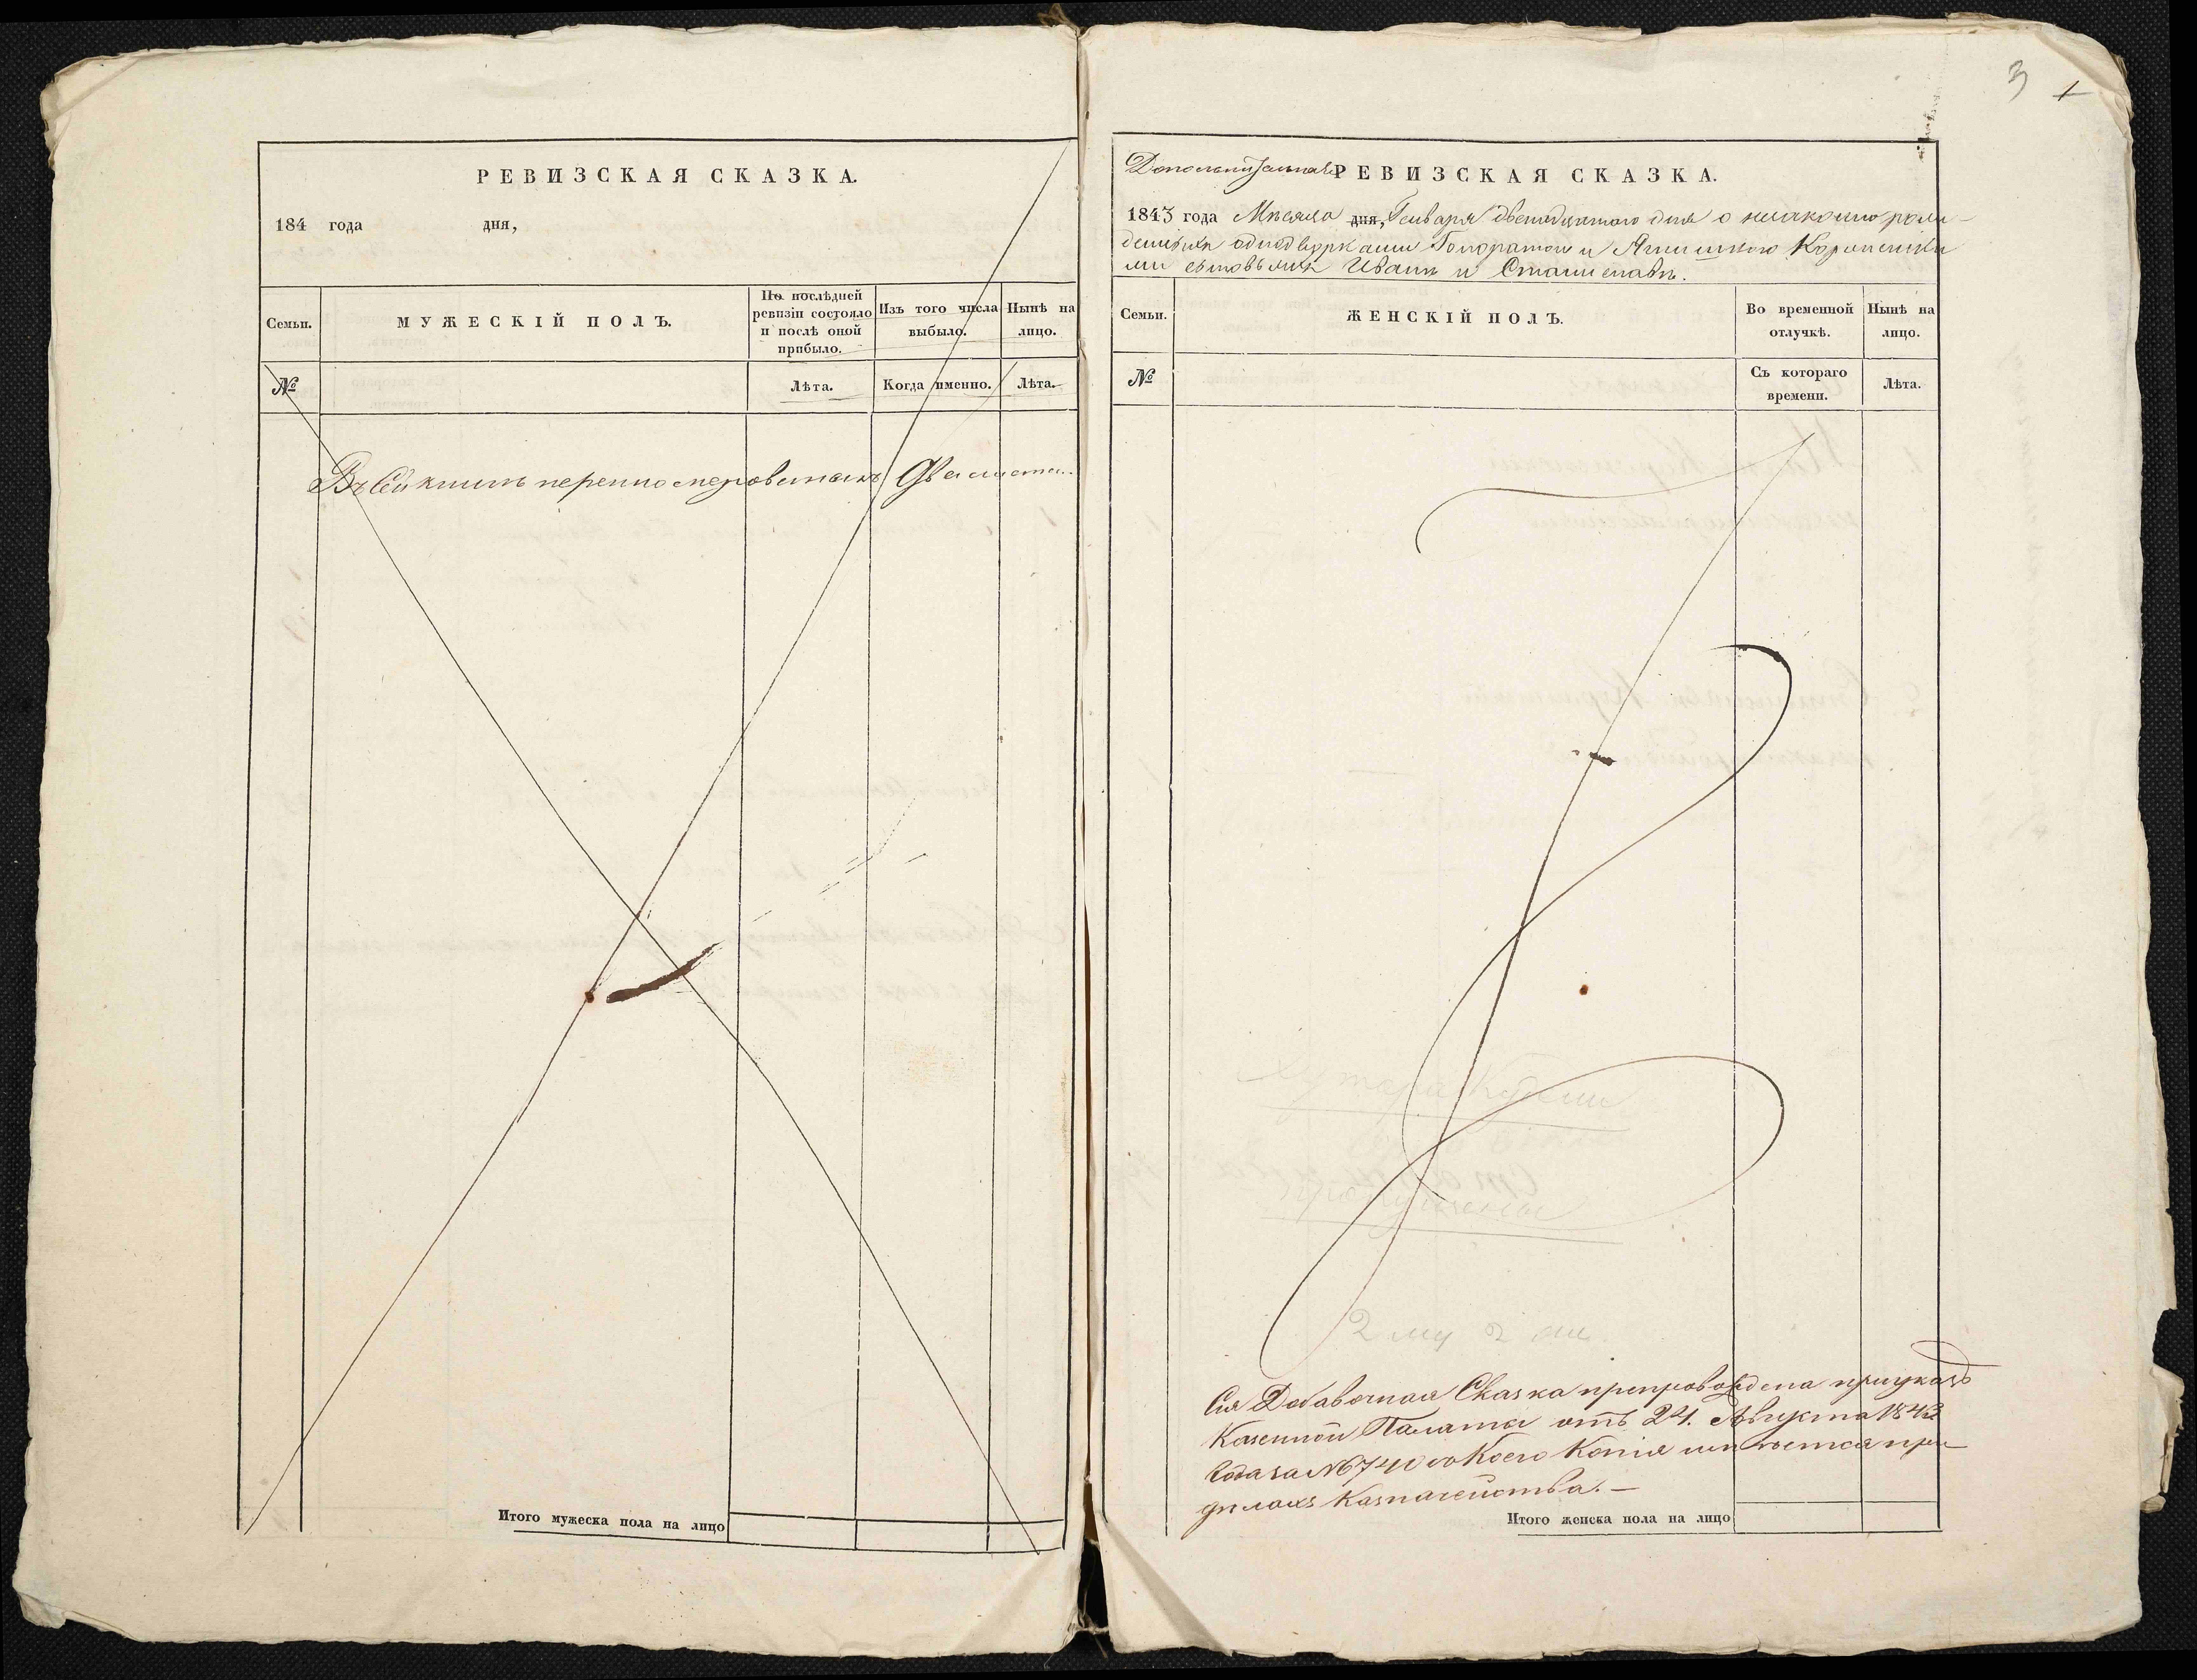 РЕВИЗСКАЯ СКАЗКА.
184 года дня,
Семьи.
МУЖЕСКІЙ ПОЛЪ.
По послѣдней
ревизіи состояло
и послѣ оной
прибыло.
Изъ того числа
выбыло.
Нынѣ на
лицо.
№
Лѣта.
Когда именно.
Лѣта.
Въ сей книгѣ перенумерованныхъ два листа.
Итого мужеска пола на лицо
3 1
Дополнительная РЕВИЗСКАЯ СКАЗКА.
1843 года Мѣсяца дня, Генваря двенадцатого дня о незаконно рож-
денныхъ однодворками и
ми сыновьяхъ Иванѣ и Станиславѣ.
Семьи.
ЖЕНСКІЙ ПОЛЪ.
Во временной
отлучкѣ.
Нынѣ на
лицо.
№
Съ котораго
времени.
Лѣта.
2 му
Сия Добавочная Сказка препровождена при указѣ
Казенной Палаты отъ 24. Августа 1843
Года за №6740 со коего Копія имѣется при
дѣлахъ Казначейства. —
Итого женска пола на лицо